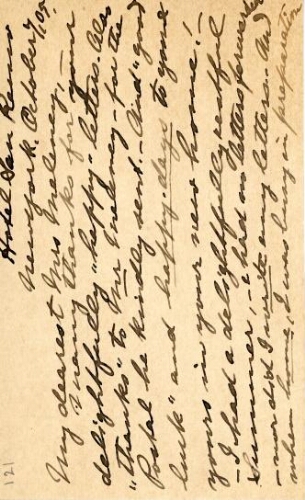 Hotel San Remo
New York. October 7, 09.
My dearest Mrs
Many thanks for your
delightfully "happy" letters. Also
"thanks" to Mr. for the
Postal he kindly sent. - And "good
luck" and happy days to you &
yours in your new home! -
- I had a delightfully restful
Summer, - I had no letters forwarded
- nor did I write any letters. And
when home, I was busy in preparation
121